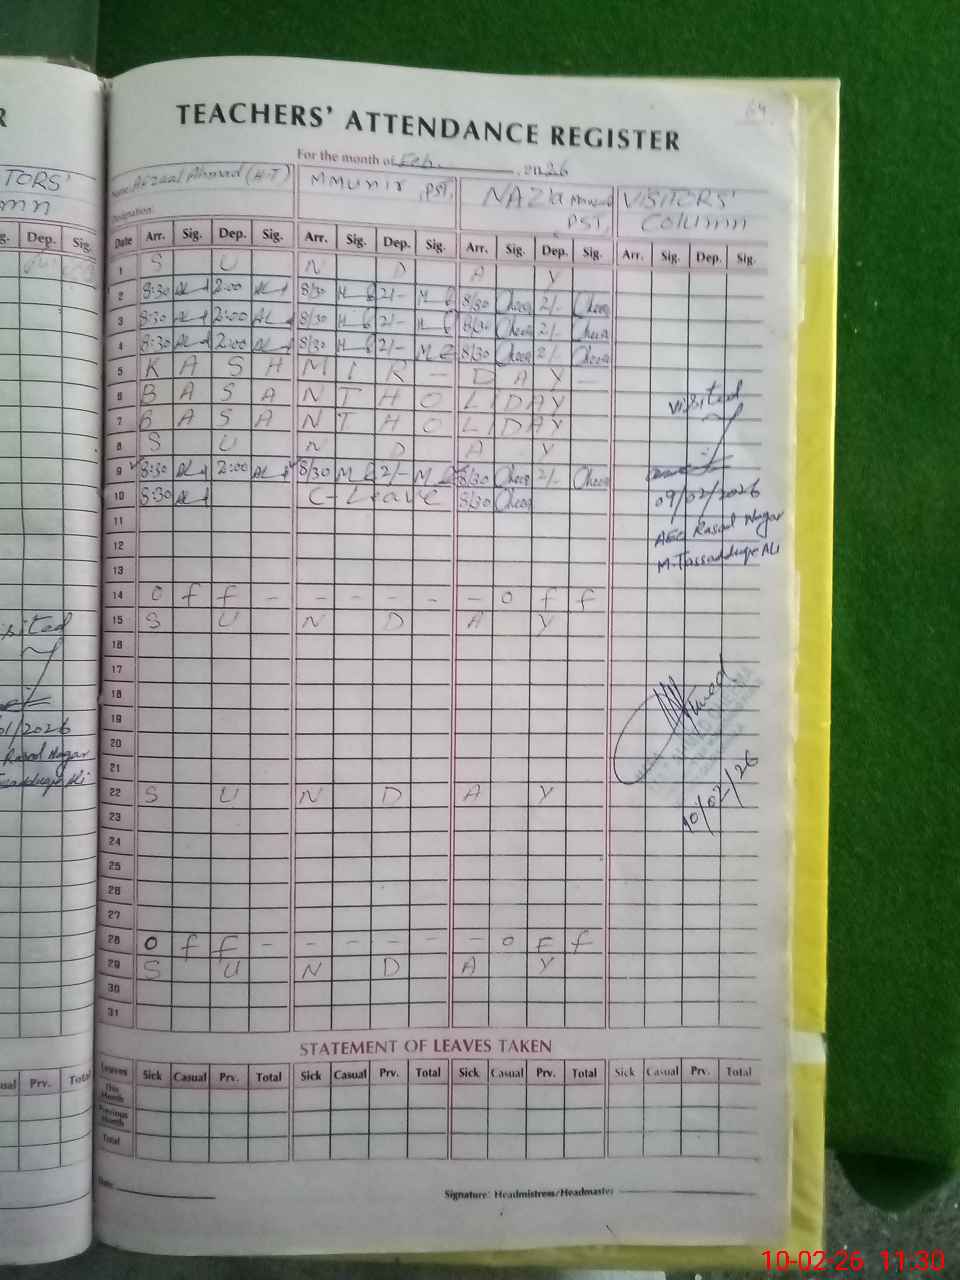 TEACHERS' ATTENDANCE REGISTER
64
For the month of Feb. , 2026
Name: Afzaal Ahmad (H-T) M Munir , PST, NAZia PST, VISITORS' Column
Designation:
Date Arr. Sig. Dep. Sig. Arr. Sig. Dep. Sig. Arr. Sig. Dep. Sig. Arr. Sig. Dep. Sig.
1 S U N D A Y
2 8:30 2:00 8/30 2/- 8/30 2/-
3 8:30 2:00 8/30 2/- 8/30 2/-
4 8:30 2:00 8/30 2/- 8/30 2/-
5 K A S H M I R - D A Y -
6 B A S A N T H O L I D A Y
7 B A S A N T H O L I D A Y
8 S U N D A Y
9 8:30 2:00 8/30 2/- 8/30 2/-
10 8:30 C-Leave 8/30
11
12
13
14 o f f - - - - - - o f f
15 S U N D A Y
16
17
18
19
20
21
22 S U N D A Y
23
24
25
26
27
28 o f f - - - - - - o F f
29 S U N D A Y
30
31
visited
09/02/2026
AEO Rasool Nagar
M. Tassadduqe Ali
10/02/26
STATEMENT OF LEAVES TAKEN
Leaves Sick Casual Prv. Total Sick Casual Prv. Total Sick Casual Prv. Total Sick Casual Prv. Total
This Month
Previous Month
Total
Date:
Signature: Headmistress/Headmaster
R
TORS'
mn
g. Dep. Sig.
isited
01/2026
Rasool Nagar
Tassadduqe Ali
sual Prv. Total
10-02-26 11:30